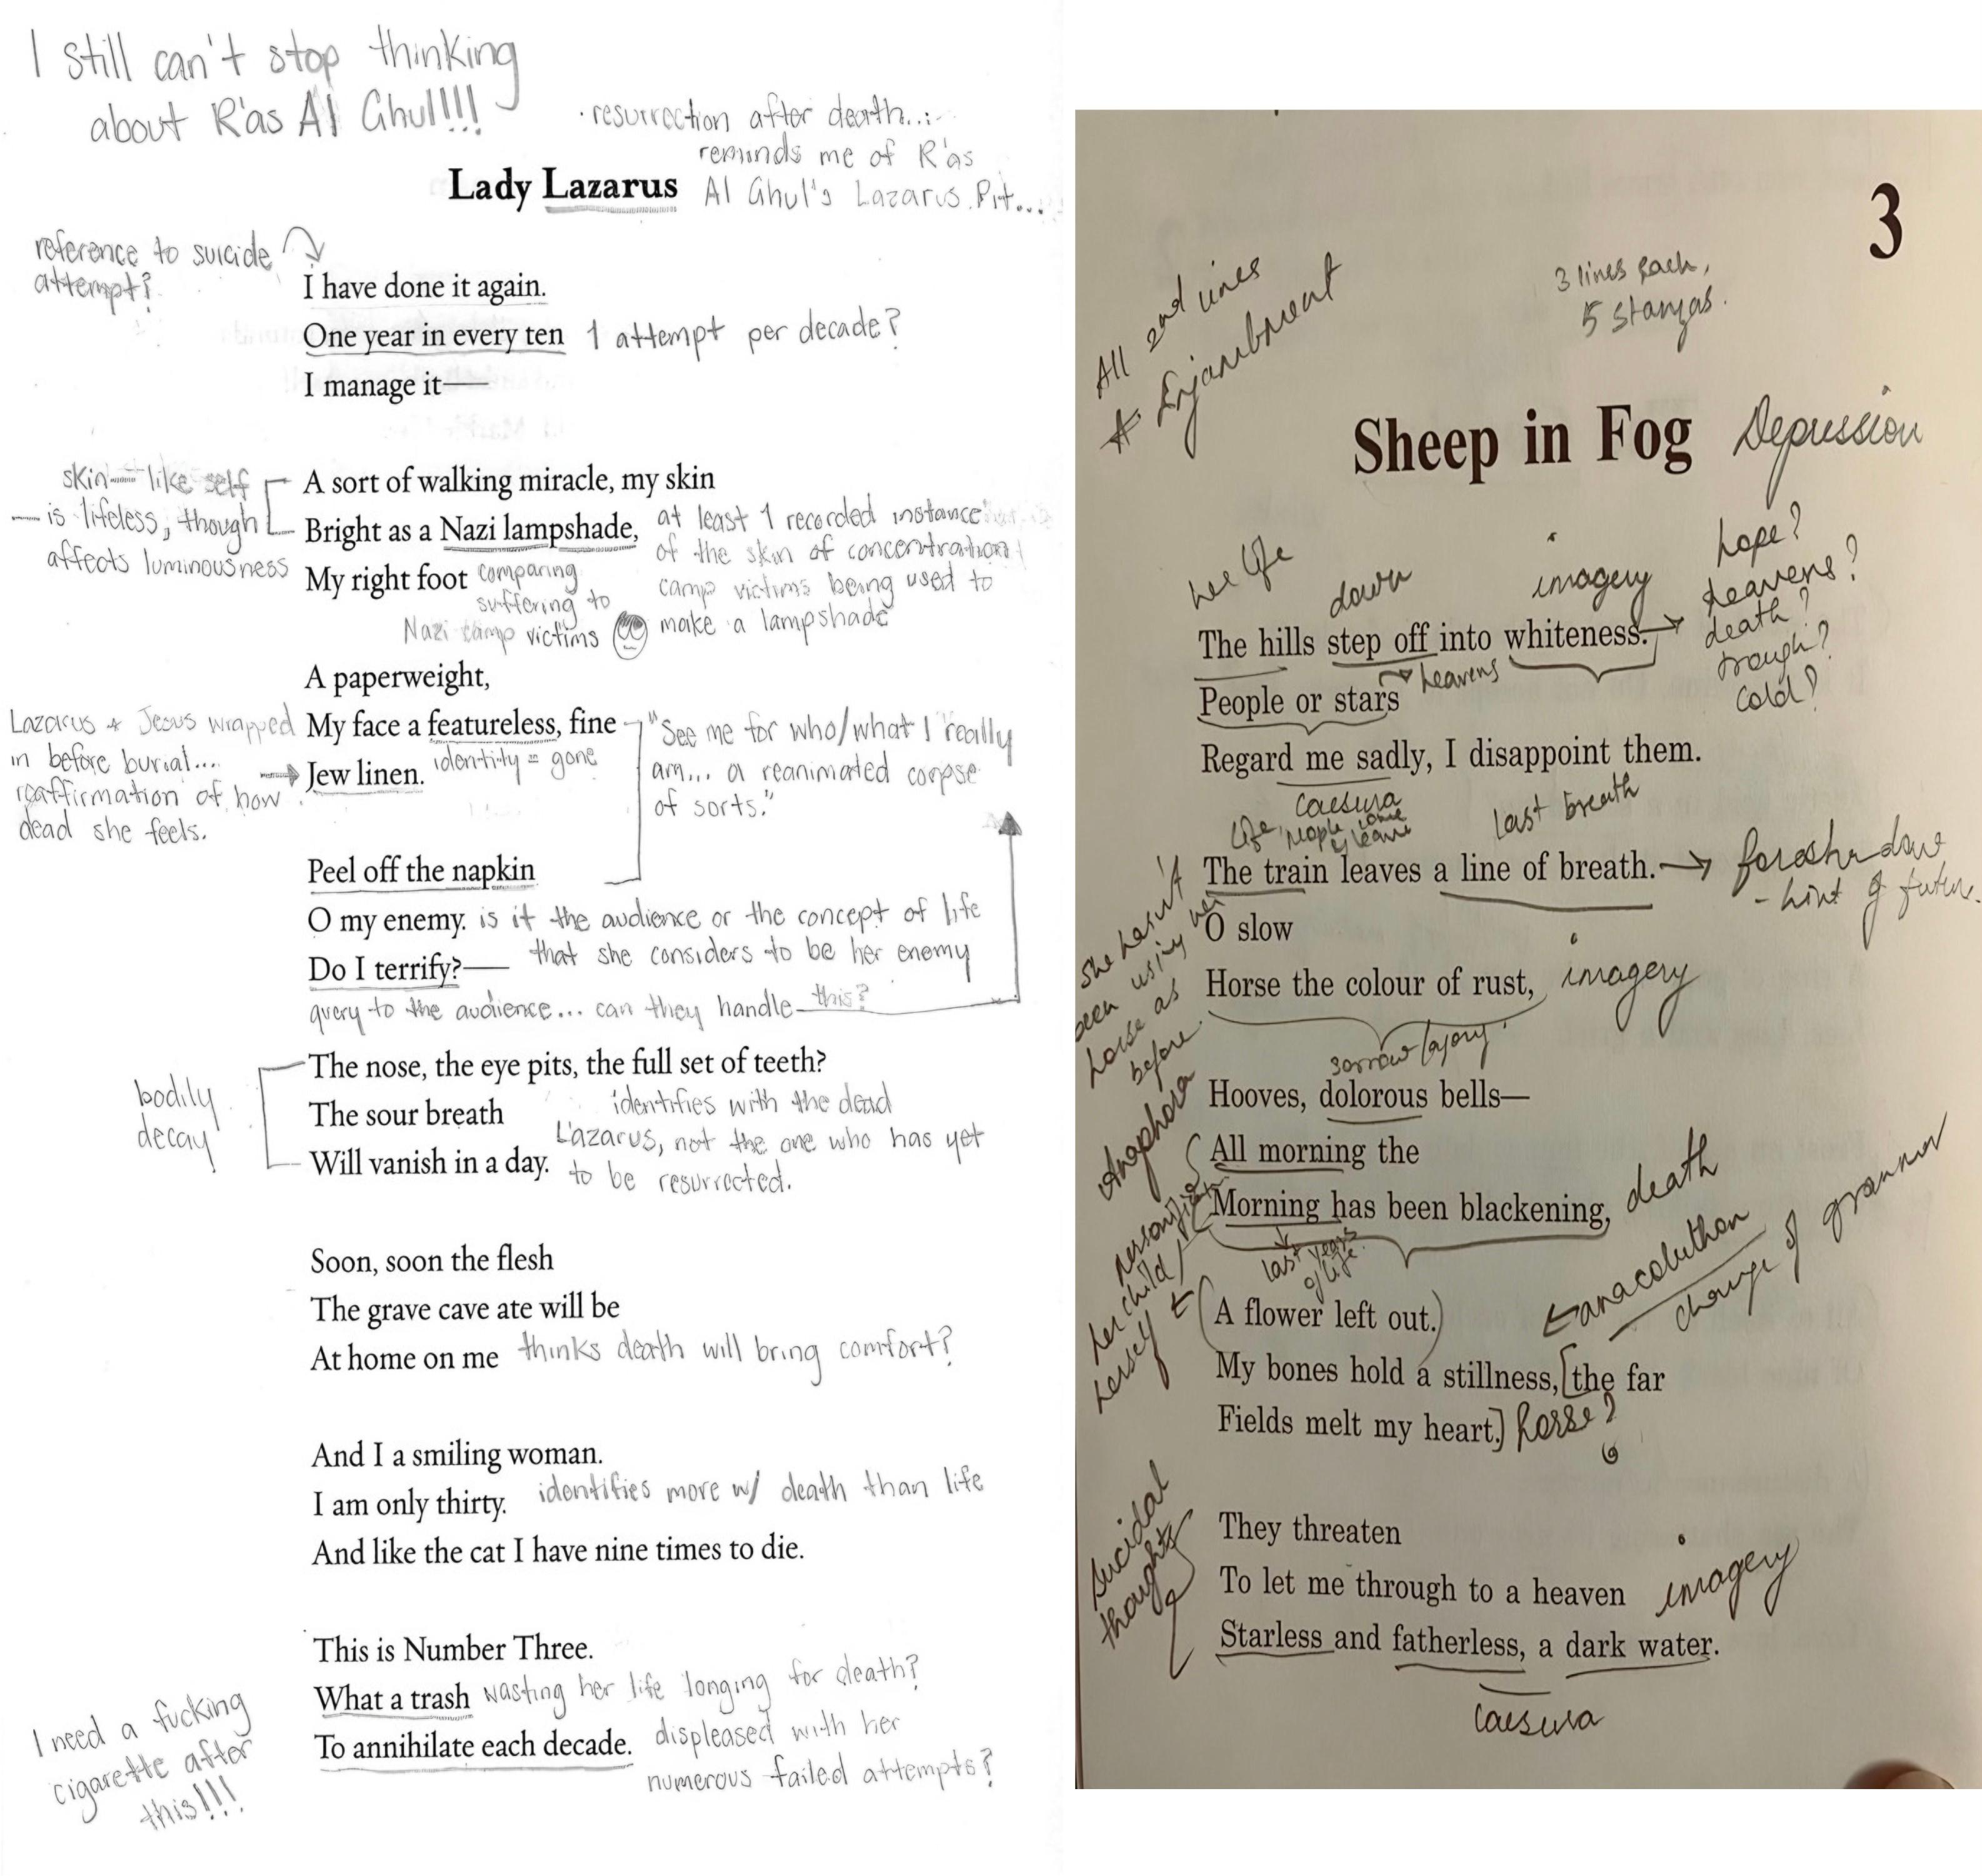 I still can't stop thinking
about R'as Al Ghul!!!
· resurrection after death...
reminds me of R'as
Al Ghul's Lazarus Pit...
Lady Lazarus
reference to suicide
attempt?
I have done it again.
One year in every ten 1 attempt per decade?
I manage it—
skin — like self
— is lifeless, though
affects luminousness
A sort of walking miracle, my skin
Bright as a Nazi lampshade,
My right foot
at least 1 recorded instance
of the skin of concentration
camp victims being used to
make a lampshade
comparing
suffering to
Nazi camp victims
A paperweight,
My face a featureless, fine
Jew linen. identity = gone
Lazarus + Jesus wrapped
in before burial...
reaffirmation of how
dead she feels.
"See me for who/what I really
am... a reanimated corpse
of sorts."
Peel off the napkin
O my enemy. is it the audience or the concept of life
Do I terrify?— that she considers to be her enemy
query to the audience... can they handle this?
bodily
decay
The nose, the eye pits, the full set of teeth?
The sour breath
Will vanish in a day.
identifies with the dead
Lazarus, not the one who has yet
to be resurrected.
Soon, soon the flesh
The grave cave ate will be
At home on me thinks death will bring comfort?
And I a smiling woman.
I am only thirty. identifies more w/ death than life
And like the cat I have nine times to die.
This is Number Three.
What a trash wasting her life longing for death?
To annihilate each decade. displeased with her
numerous failed attempts?
I need a fucking
cigarette after
this!!!
3
All 2nd lines
Enjambment
3 lines each,
5 stanzas.
Sheep in Fog Depression
her life
down
imagery
hope?
heavens?
death?
trough?
cold?
The hills step off into whiteness.
heavens
People or stars
Regard me sadly, I disappoint them.
caesura
life, people come
& leave
last breath
The train leaves a line of breath.
foreshadow
- hint of future.
O slow
Horse the colour of rust, imagery
she hasn't
been using her
horse as
before.
sorrow/agony
Hooves, dolorous bells—
Anaphora
All morning the
Morning has been blackening, death
last years
of life.
her child/
herself
A flower left out.
anacoluthon
change of grammar
My bones hold a stillness, [the far
Fields melt my heart.] horse?
Suicidal
thoughts
They threaten
To let me through to a heaven imagery
Starless and fatherless, a dark water.
caesura